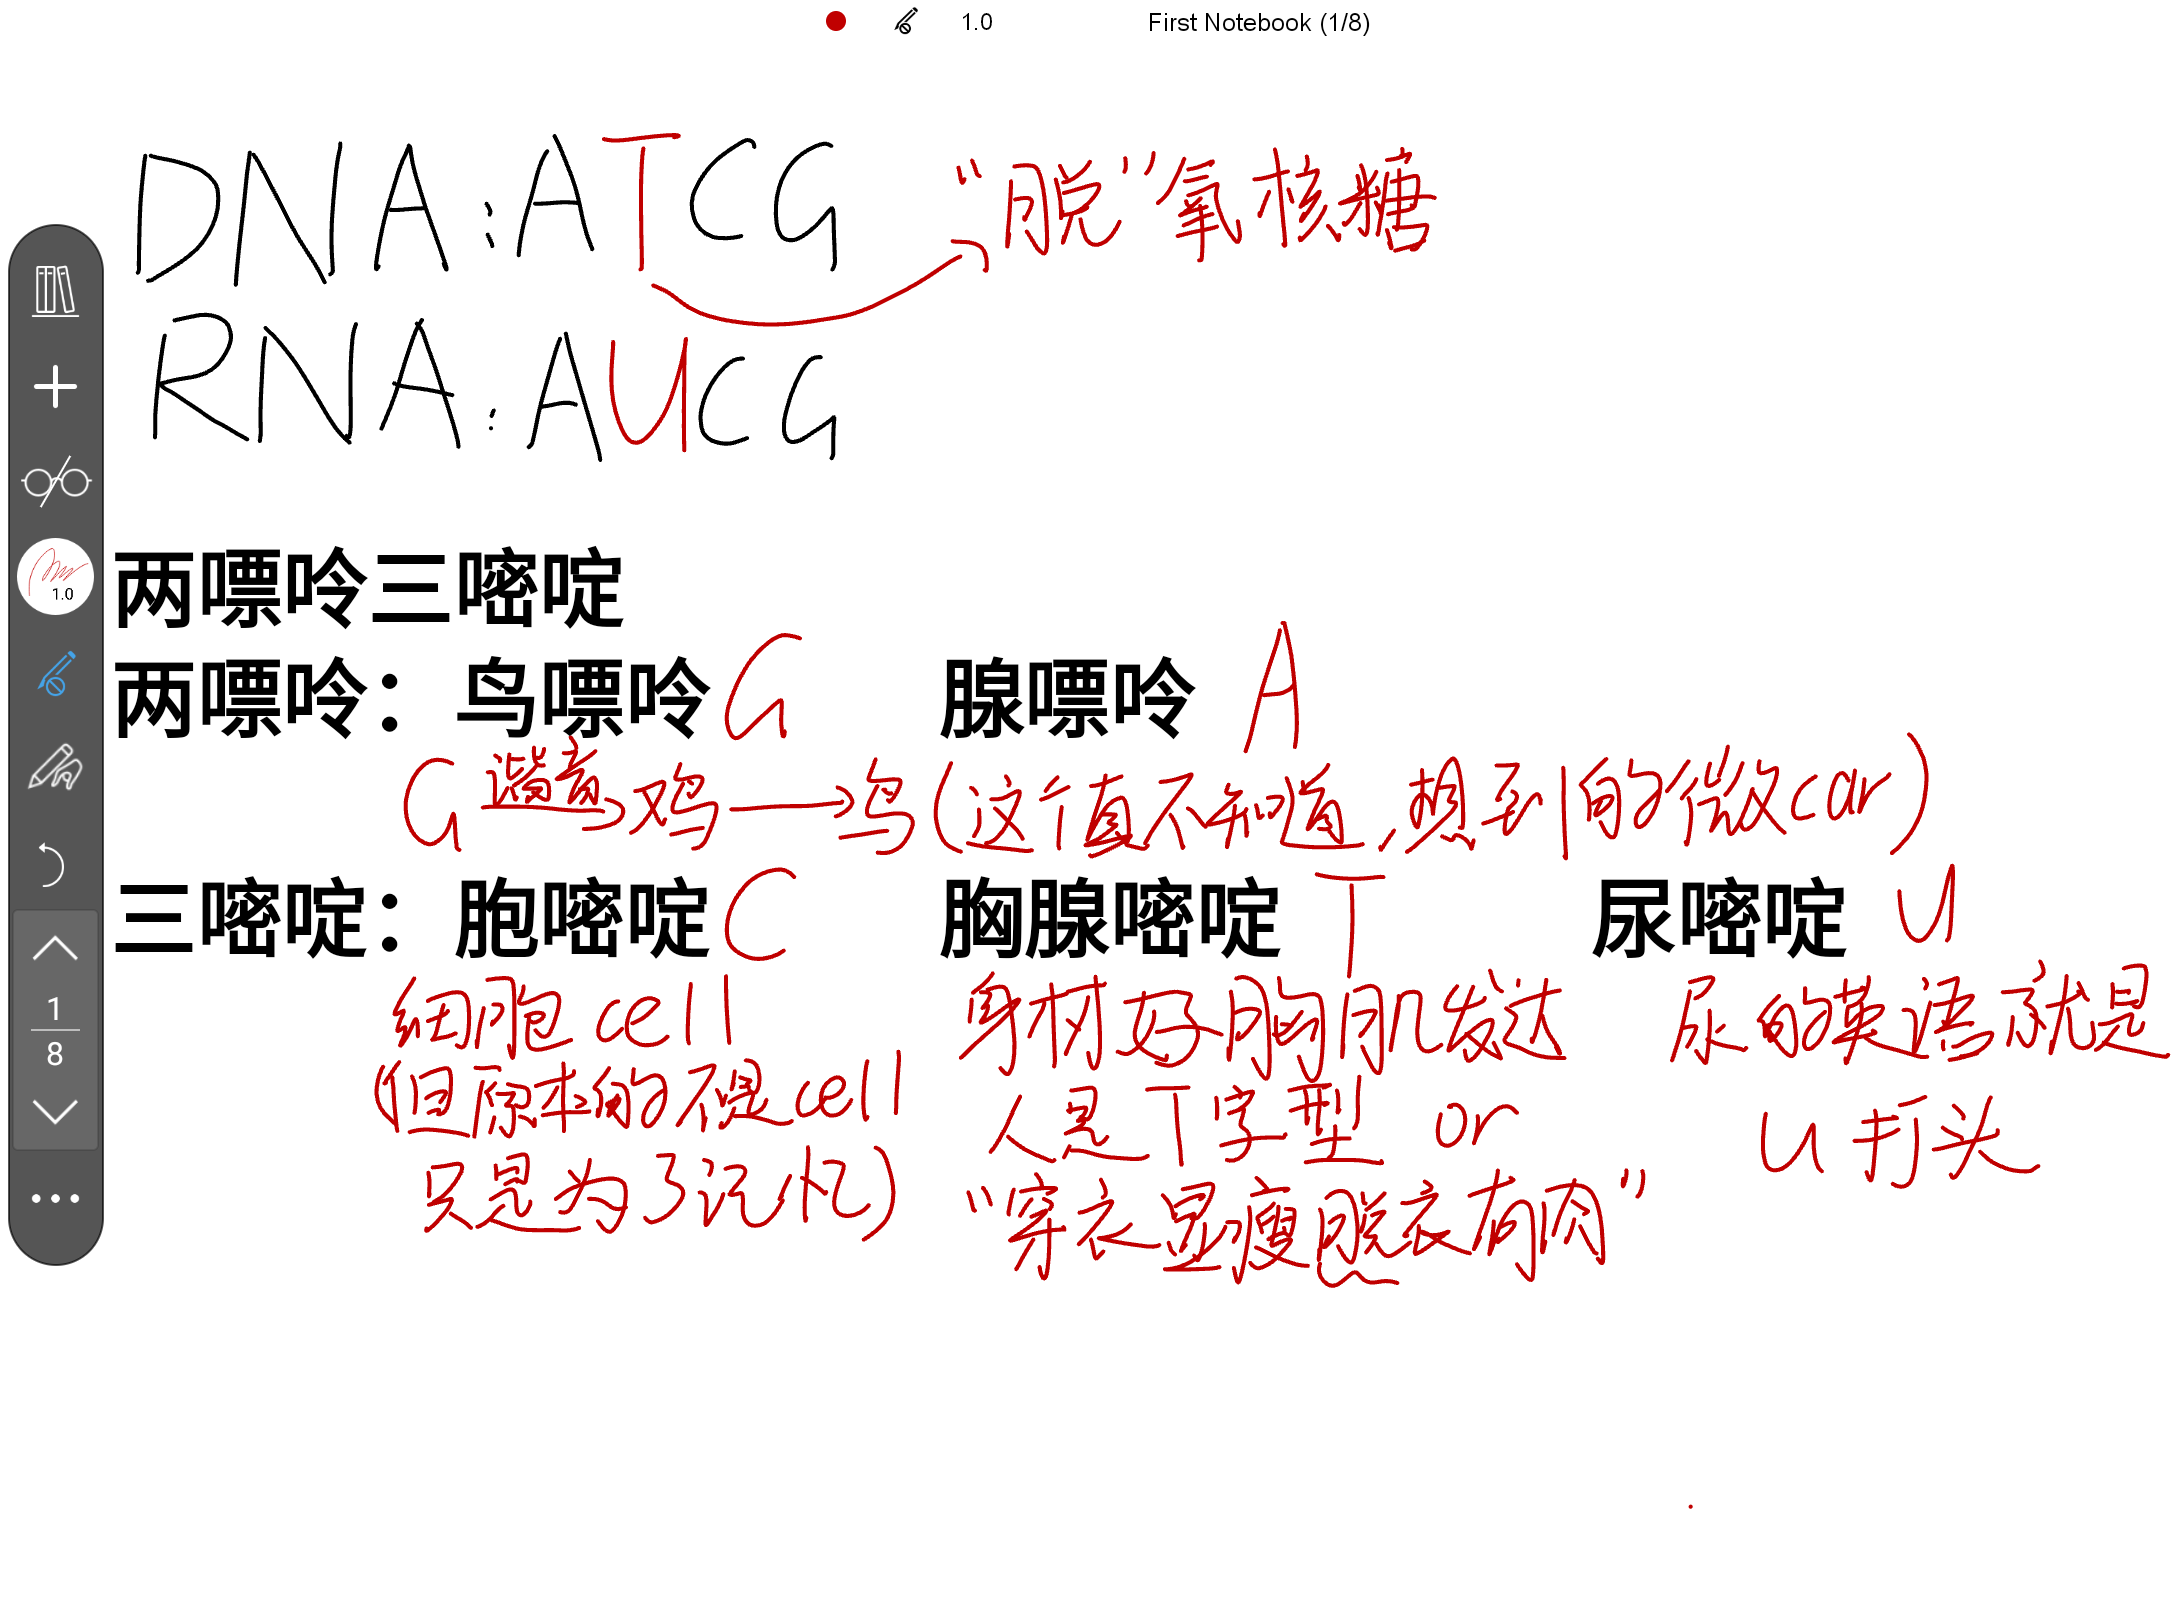 1.0 First Notebook (1/8)
DNA:ATCG “脱”氧核糖
RNA:AUCG
1.0
两嘌呤三嘧啶
两嘌呤：鸟嘌呤G 腺嘌呤 A
G 谐音 鸡 鸟(这个真不知道,想到的微car)
三嘧啶：胞嘧啶C 胸腺嘧啶 T 尿嘧啶 U
1
8
细胞 cell 身材好胸肌发达 尿的英语就是
(但原本的不是cell 人是T字型 or U打头
只是为了记忆) “穿衣显瘦脱衣有肉”